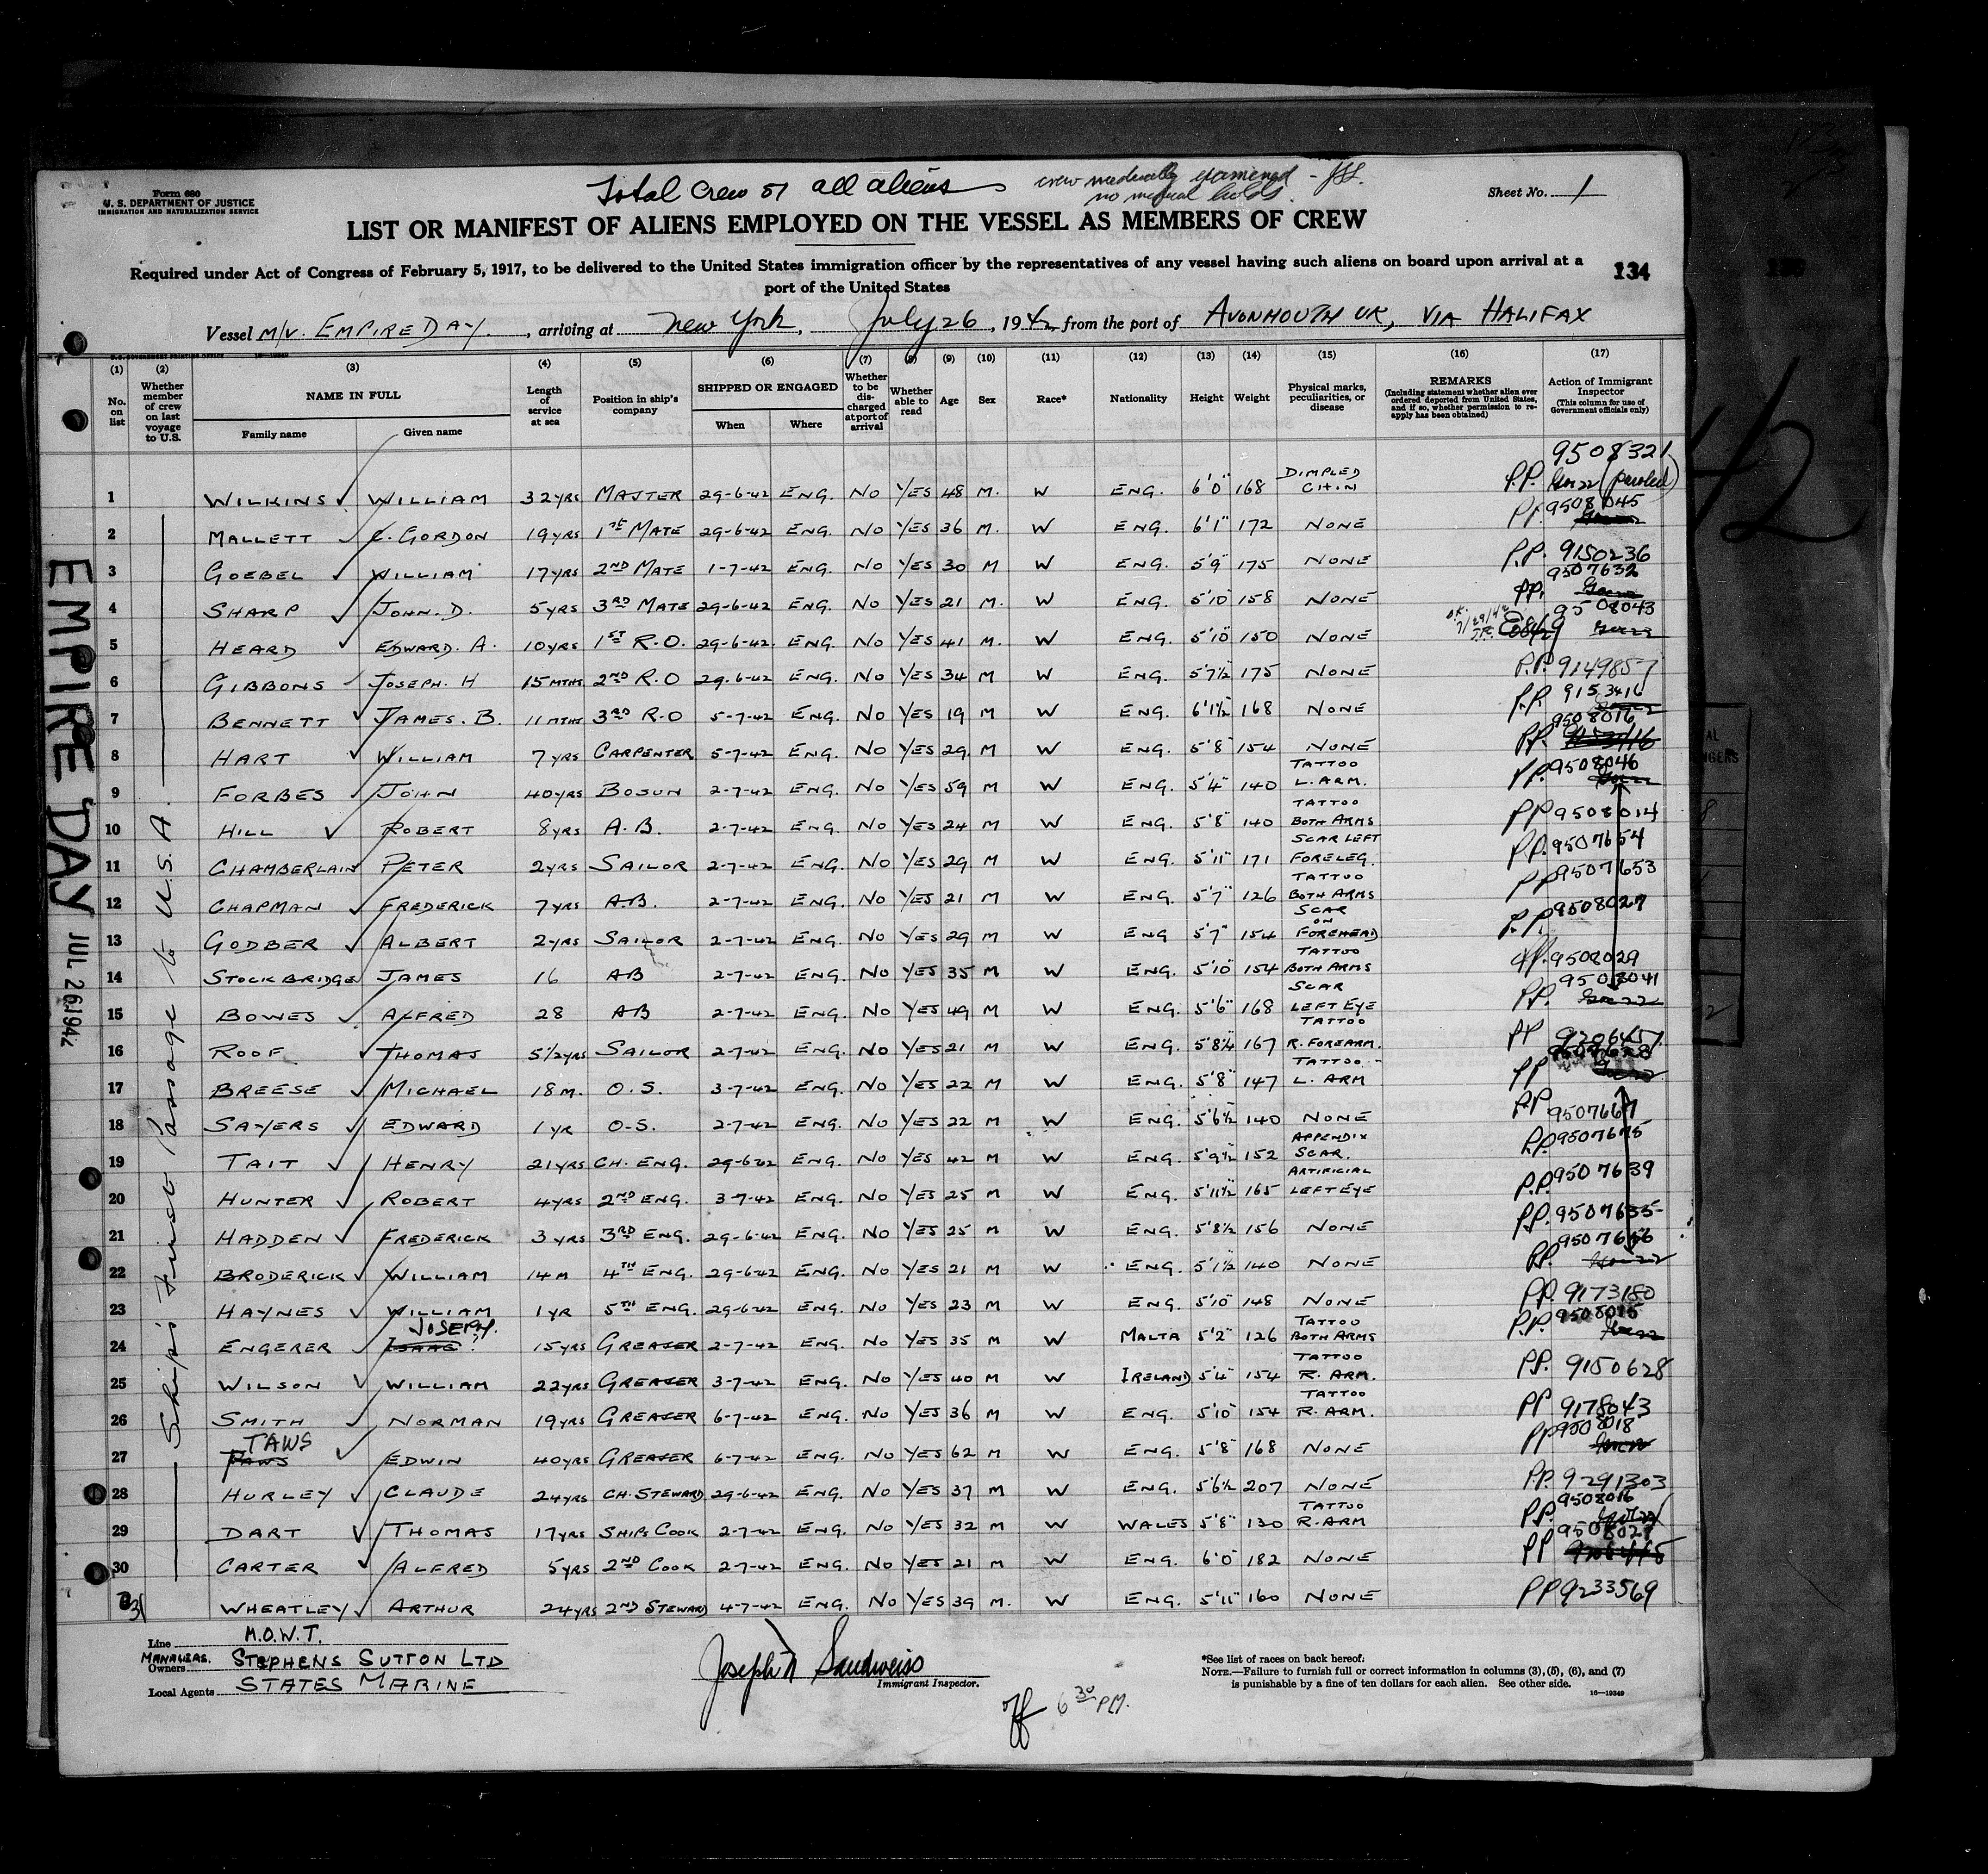 Form 680
U. S. DEPARTMENT OF JUSTICE
IMMIGRATION AND NATURALIZATION SERVICE
Total Crew 51 all aliens
crew medically examined -
no medical holds.
Sheet No. 1
LIST OR MANIFEST OF ALIENS EMPLOYED ON THE VESSEL AS MEMBERS OF CREW
Required under Act of Congress of February 5, 1917, to be delivered to the United States immigration officer by the representatives of any vessel having such aliens on board upon arrival at a
port of the United States
134
Vessel M/V. EMPIRE DAY., arriving at New York, July 26, 1942 from the port of AVONMOUTH UK, VIA HALIFAX
(1) No. on list
(2) Whether member of crew on last voyage to U.S.
(3) NAME IN FULL Family name Given name
(4) Length of service at sea
(5) Position in ship's company
(6) SHIPPED OR ENGAGED When Where
(7) Whether to be discharged at port of arrival
(8) Whether able to read
(9) Age
(10) Sex
(11) Race*
(12) Nationality
(13) Height
(14) Weight
(15) Physical marks, peculiarities, or disease
(16) REMARKS (Including statement whether alien ever ordered deported from United States, and if so, whether permission to reapply has been obtained)
(17) Action of Immigrant Inspector (This column for use of Government officials only)
EMPIRE DAY JUL 26 1942
Ship's First Passage to U.S.A.
1 WILKINS WILLIAM 32 YRS MASTER 29-6-42 ENG. NO YES 48 M. W ENG. 6'0" 168 DIMPLED CHIN P.P. 9508321 (paroled)
2 MALLETT C. GORDON 19 YRS 1ST MATE 29-6-42 ENG. NO YES 36 M. W ENG. 6'1" 172 NONE P.P. 9508045
3 GOEBEL WILLIAM 17 YRS 2ND MATE 1-7-42 ENG. NO YES 30 M W ENG. 5'9" 175 NONE P.P. 9150236
4 SHARP JOHN. D. 5 YRS 3RD MATE 29-6-42 ENG. NO YES 21 M. W ENG. 5'10" 158 NONE P.P. 9507632
5 HEARD EDWARD. A. 10 YRS 1ST R.O. 29-6-42 ENG. NO YES 41 M. W ENG. 5'10" 150 NONE 9508043
6 GIBBONS JOSEPH. H 15 MTHS 2ND R.O 29-6-42 ENG. NO YES 34 M W ENG. 5'7½ 175 NONE P.P. 9149857
7 BENNETT JAMES. B. 11 MTHS 3RD R.O 5-7-42 ENG. NO YES 19 M W ENG. 6'1½" 168 NONE P.P. 9153416
8 HART WILLIAM 7 YRS CARPENTER 5-7-42 ENG. NO YES 29 M W ENG. 5'8" 154 NONE P.P. 9508016
9 FORBES JOHN 40 YRS BOSUN 2-7-42 ENG. NO YES 59 M W ENG. 5'4" 140 TATTOO L. ARM. P.P. 9508046
10 HILL ROBERT 8 YRS A.B. 2-7-42 ENG. NO YES 24 M W ENG. 5'8" 140 TATTOO BOTH ARMS PP 9508014
11 CHAMBERLAIN PETER 2 YRS SAILOR 2-7-42 ENG. NO YES 29 M W ENG. 5'11" 171 SCAR LEFT FORELEG. P.P. 9507654
12 CHAPMAN FREDERICK 7 YRS A.B. 2-7-42 ENG. NO YES 21 M W ENG. 5'7" 126 TATTOO BOTH ARMS PP 9507653
13 GODBER ALBERT 2 YRS SAILOR 2-7-42 ENG. NO YES 29 M W ENG 5'7" 154 SCAR ON FOREHEAD P.P. 9508027
14 STOCKBRIDGE JAMES 16 AB 2-7-42 ENG. NO YES 35 M W ENG. 5'10" 154 TATTOO BOTH ARMS PP. 9508029
15 BOWES ALFRED 28 AB 2-7-42 ENG. NO YES 49 M W ENG. 5'6" 168 SCAR LEFT EYE P.P. 9508041
16 ROOF THOMAS 5½ YRS SAILOR 2-7-42 ENG. NO YES 21 M W ENG. 5'8¼ 167 TATTOO R. FOREARM. PP 9206457
17 BREESE MICHAEL 18 M. O.S. 3-7-42 ENG. NO YES 22 M W ENG. 5'8" 147 TATTOO L. ARM PP
18 SAYERS EDWARD 1 YR O.S. 2-7-42 ENG. NO YES 22 M W ENG. 5'6½ 140 NONE PP 9507667
19 TAIT HENRY 21 YRS CH. ENG. 29-6-42 ENG. NO YES 42 M W ENG. 5'9½ 152 APPENDIX SCAR. P.P. 9507675
20 HUNTER ROBERT 4 YRS 2ND ENG. 3-7-42 ENG. NO YES 25 M W ENG. 5'11½ 165 ARTIFICIAL LEFT EYE P.P. 9507639
21 HADDEN FREDERICK 3 YRS 3RD ENG. 29-6-42 ENG. NO YES 25 M W ENG. 5'8½ 156 NONE P.P. 9507635
22 BRODERICK WILLIAM 14 M 4TH ENG. 29-6-42 ENG. NO YES 21 M W ENG. 5'1½ 140 NONE P.P. 9507656
23 HAYNES WILLIAM 1 YR 5TH ENG. 29-6-42 ENG. NO YES 23 M W ENG. 5'10" 148 NONE P.P. 9173180
24 ENGERER ISAAC JOSEPH. 15 YRS GREASER 2-7-42 ENG. NO YES 35 M W MALTA 5'2" 126 TATTOO BOTH ARMS P.P. 9508015
25 WILSON WILLIAM 22 YRS GREASER 3-7-42 ENG. NO YES 40 M W IRELAND 5'4" 154 TATTOO R. ARM. P.P. 9150628
26 SMITH NORMAN 19 YRS GREASER 6-7-42 ENG. NO YES 36 M W ENG. 5'10" 154 TATTOO R. ARM. PP 9178043
27 PAWS TAWS EDWIN 40 YRS GREASER 6-7-42 ENG. NO YES 62 M W ENG. 5'8" 168 NONE PP 9508018
28 HURLEY CLAUDE 24 YRS CH. STEWARD 29-6-42 ENG. NO YES 37 M W ENG. 5'6½ 207 NONE P.P. 9291303
29 DART THOMAS 17 YRS SHIPS COOK 2-7-42 ENG. NO YES 32 M W WALES 5'8" 130 TATTOO R. ARM P.P. 9508016
30 CARTER ALFRED 5 YRS 2ND COOK 2-7-42 ENG. NO YES 21 M W ENG. 6'0" 182 NONE PP 9508028
31 WHEATLEY ARTHUR 24 YRS 2ND STEWARD 4-7-42 ENG. NO YES 39 M. W ENG. 5'11" 160 NONE PP 9233569
Line M.O.W.T.
MANAGERS. Owners STEPHENS SUTTON LTD
Local Agents STATES MARINE
Joseph Sandweiss
Immigrant Inspector.
6 30 P.M.
*See list of races on back hereof.
NOTE.—Failure to furnish full or correct information in columns (3), (5), (6), and (7)
is punishable by a fine of ten dollars for each alien. See other side.
16—19349
42